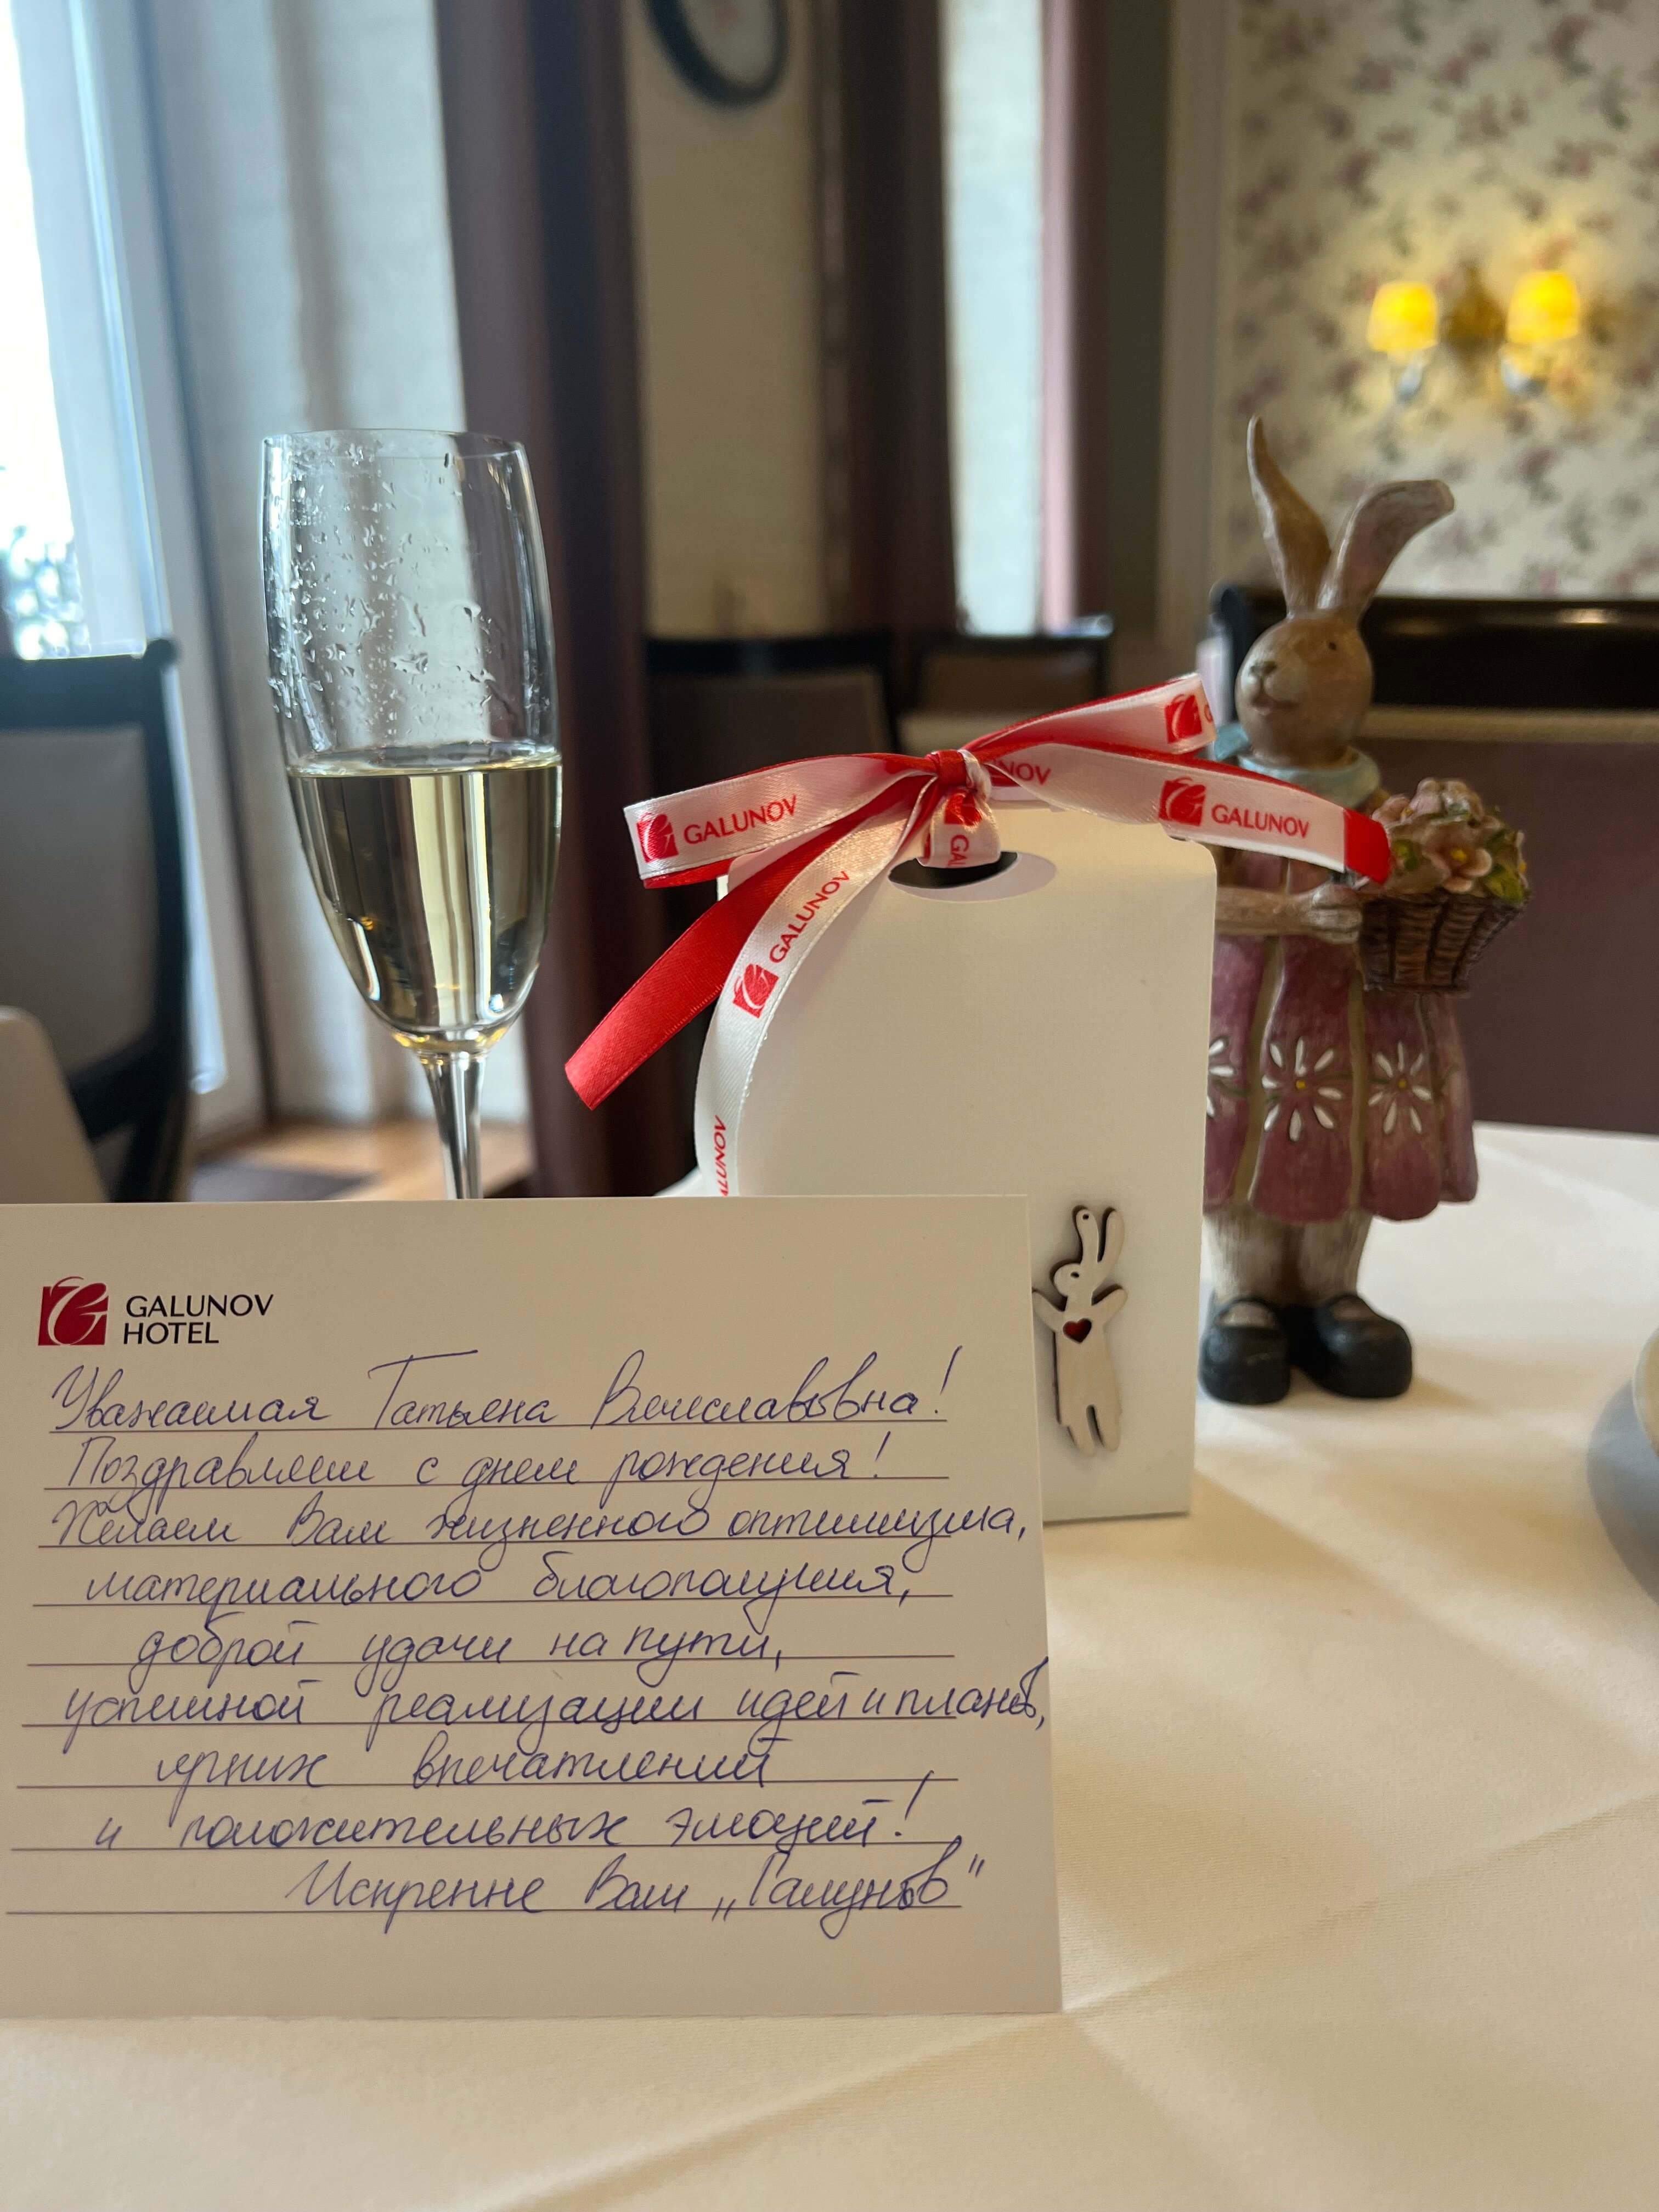 GALUNOV
GALUNOV
GALUNOV
GALUNOV
HOTEL
Уважаемая Татьяна Вячеславовна!
Поздравляем с днем рождения!
Желаем Вам жизненного оптимизма,
материального благополучия,
доброй удачи на пути,
успешной реализации идей и планов,
ярких впечатлений
и положительных эмоций!
Искренне Ваш „Галунов"